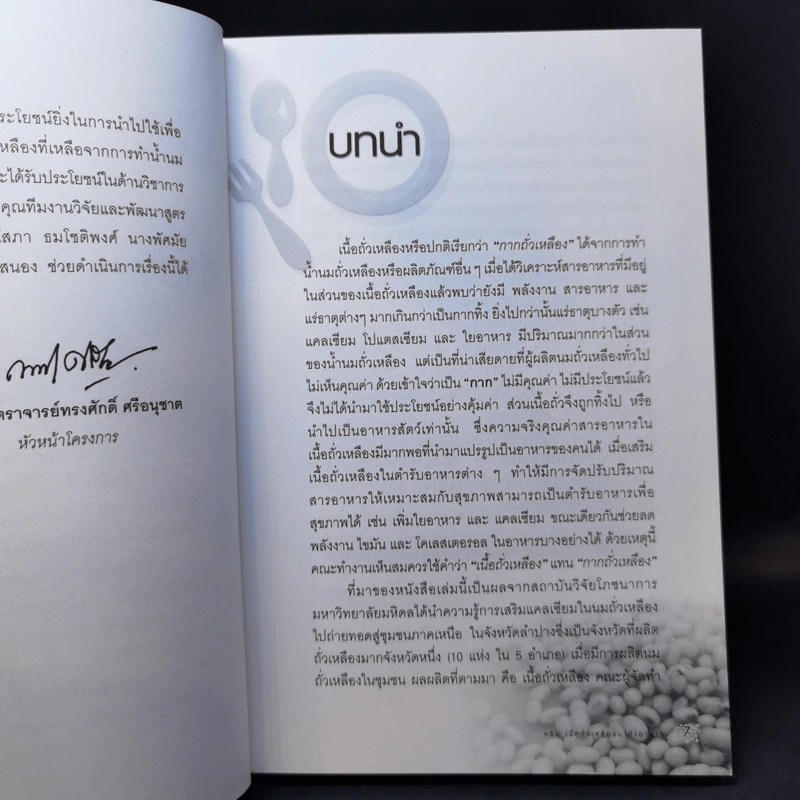 ระโยชน์ยิ่งในการนำไปใช้เพื่อ
เหลืองที่เหลือจากการทำน้ำนม
ะได้รับประโยชน์ในด้านวิชาการ
คุณทีมงานวิจัยและพัฒนาสูตร
โสภา ธมโชติพงศ์ นางพัศมัย
สนอง ช่วยดำเนินการเรื่องนี้ได้
ตราจารย์ทรงศักดิ์ ศรีอนุชาต
หัวหน้าโครงการ
บทนำ
เนื้อถั่วเหลืองหรือปกติเรียกว่า “กากถั่วเหลือง” ได้จากการทำ
น้ำนมถั่วเหลืองหรือผลิตภัณฑ์อื่น ๆ เมื่อได้วิเคราะห์สารอาหารที่มีอยู่
ในส่วนของเนื้อถั่วเหลืองแล้วพบว่ายังมี พลังงาน สารอาหาร และ
แร่ธาตุต่างๆ มากเกินกว่าเป็นกากทิ้ง ยิ่งไปกว่านั้นแร่ธาตุบางตัว เช่น
แคลเซียม โปแตสเซียม และ ใยอาหาร มีปริมาณมากกว่าในส่วน
ของน้ำนมถั่วเหลือง แต่เป็นที่น่าเสียดายที่ผู้ผลิตนมถั่วเหลืองทั่วไป
ไม่เห็นคุณค่า ด้วยเข้าใจว่าเป็น “กาก” ไม่มีคุณค่า ไม่มีประโยชน์แล้ว
จึงไม่ได้นำมาใช้ประโยชน์อย่างคุ้มค่า ส่วนเนื้อถั่วจึงถูกทิ้งไป หรือ
นำไปเป็นอาหารสัตว์เท่านั้น ซึ่งความจริงคุณค่าสารอาหารใน
เนื้อถั่วเหลืองมีมากพอที่นำมาแปรรูปเป็นอาหารของคนได้ เมื่อเสริม
เนื้อถั่วเหลืองในตำรับอาหารต่าง ๆ ทำให้มีการจัดปรับปริมาณ
สารอาหารให้เหมาะสมกับสุขภาพสามารถเป็นตำรับอาหารเพื่อ
สุขภาพได้ เช่น เพิ่มใยอาหาร และ แคลเซียม ขณะเดียวกันช่วยลด
พลังงาน ไขมัน และ โคเลสเตอรอล ในอาหารบางอย่างได้ ด้วยเหตุนี้
คณะทำงานเห็นสมควรใช้คำว่า “เนื้อถั่วเหลือง” แทน “กากถั่วเหลือง”
ที่มาของหนังสือเล่มนี้เป็นผลจากสถาบันวิจัยโภชนาการ
มหาวิทยาลัยมหิดลได้นำความรู้การเสริมแคลเซียมในนมถั่วเหลือง
ไปถ่ายทอดสู่ชุมชนภาคเหนือ ในจังหวัดลำปางซึ่งเป็นจังหวัดที่ผลิต
ถั่วเหลืองมากจังหวัดหนึ่ง (10 แห่ง ใน 5 อำเภอ) เมื่อมีการผลิตนม
ถั่วเหลืองในชุมชน ผลผลิตที่ตามมา คือ เนื้อถั่วเหลือง คณะผู้จัดทำ
7